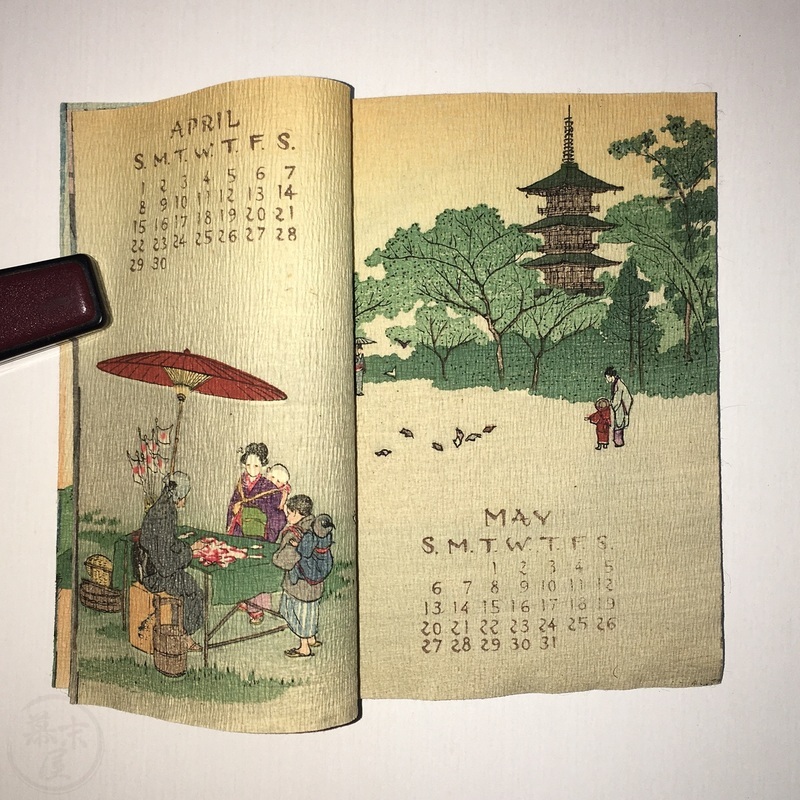 APRIL
S. M. T. W. T. F. S.
1 2 3 4 5 6 7
8 9 10 11 12 13 14
15 16 17 18 19 20 21
22 23 24 25 26 27 28
29 30
MAY
S. M. T. W. T. F. S.
1 2 3 4 5
6 7 8 9 10 11 12
13 14 15 16 17 18 19
20 21 22 23 24 25 26
27 28 29 30 31
幕末屋